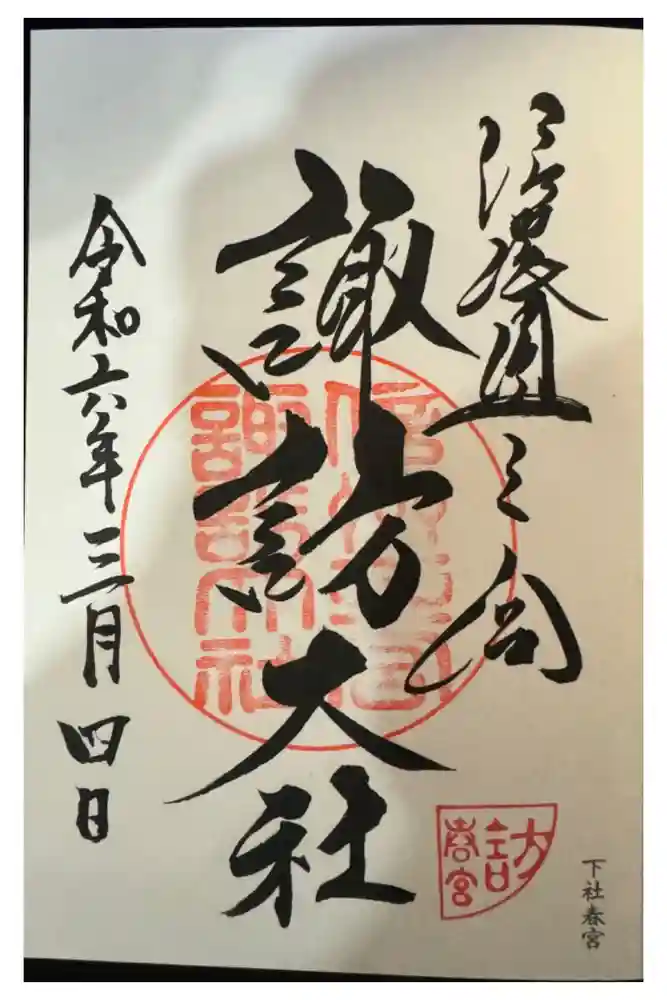 信濃國一之宮
諏訪大社
令和六年三月四日
諏訪大社
春宮
下社春宮